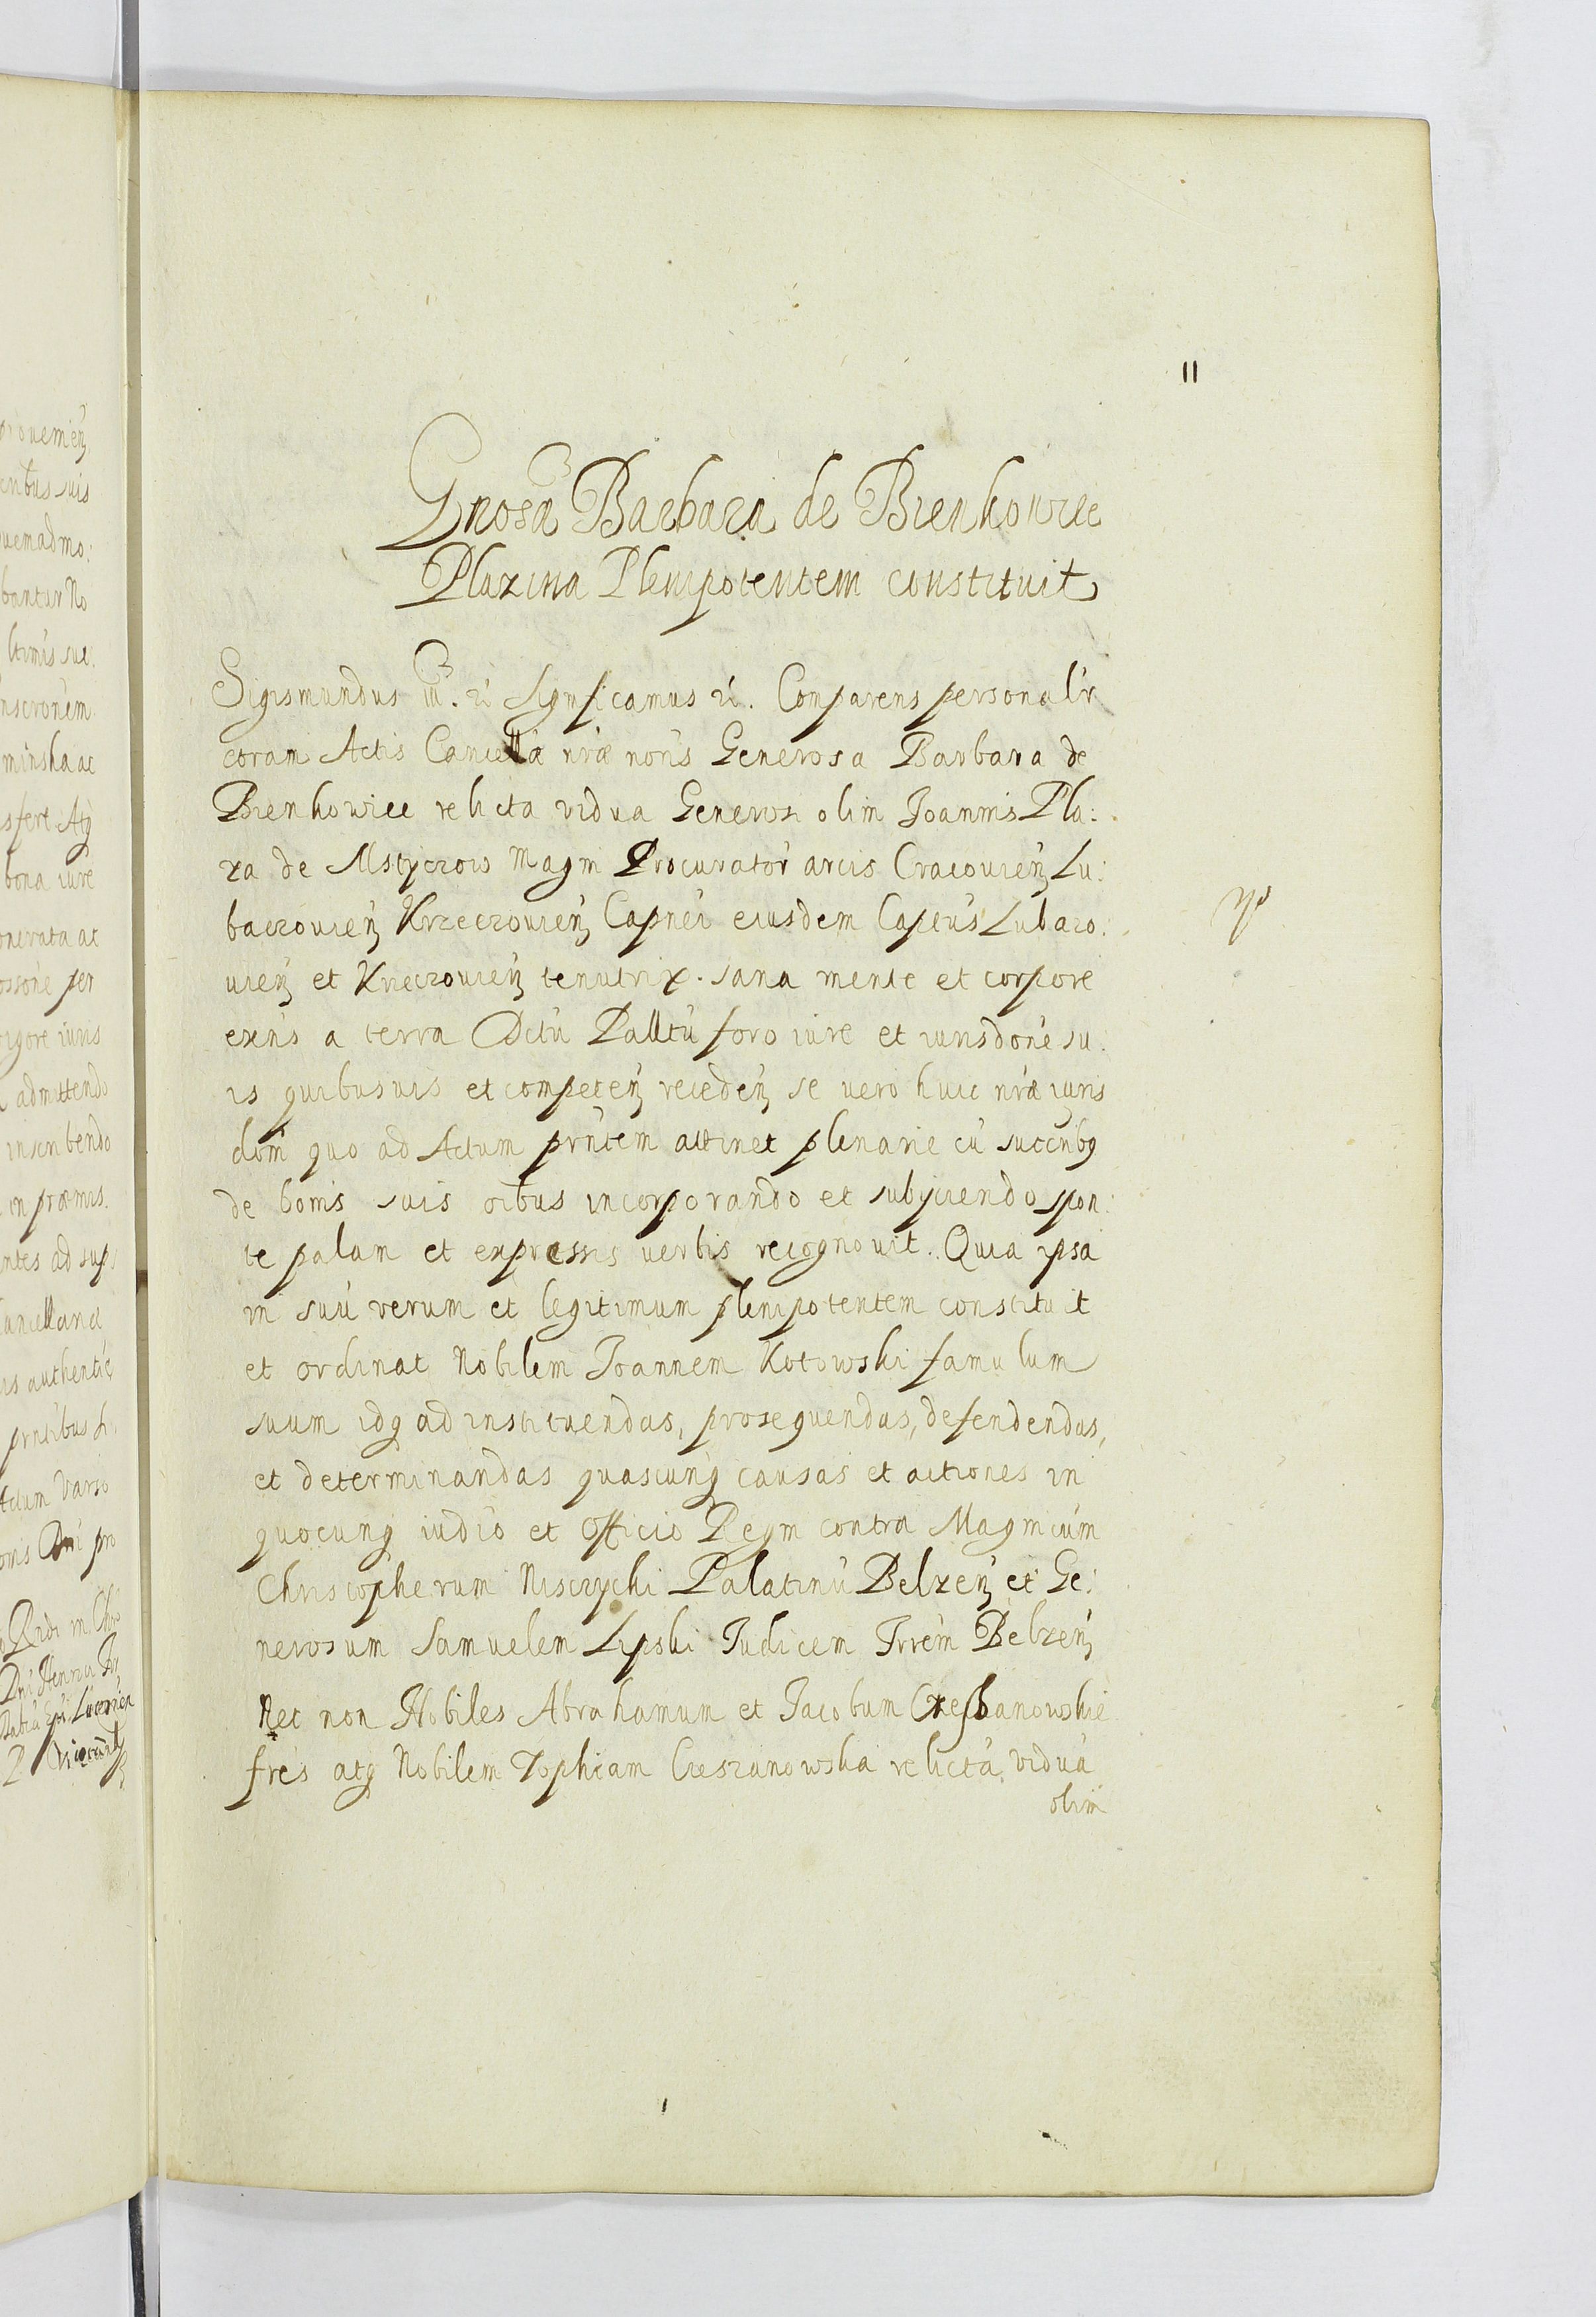 11
Gnosa Barbara de Bienkowice
Plazina Plenipotentem constituit
Sigismundus iii. etc Significamus etc. Comparens personalr
coram Actis Cancellae nrae noris Generosa Barbara de
Bienkowice relicta vidua Generosi olim Joannis Pla:
za de Mstyczow Magni Procurator arcis Cracovien Lu:
baczovien Krzeczovien Capnei eiusdem Capeus Lubaco:
vien et Krzeczovien tenutrix. sana mente et corpore
exns a terra Dctu Palltu foro iure et iurisdone su:
is quibusvis et competen receden se vero huic nrae iuris
doni quo ad Actum prntem attinet plenarie cu succribq
de bonis suis oibus incorporando et subyciendo spon:
te palam et expressis verbis recognovit. Quia ipsa
in suu verum et legitimum plenipotentem constituit
et ordinat Nobilem Joannem Kotowski famulum
suum idq ad instituendas, prosequendas, defendendas,
et determinandas quascunq causas et actiones in
quocunq iudio et officio Regni contra Magnicum
Christopherum Nisczycki Palatinu Belzen et Ge:
nerosum Samuelem Lipski Judicem Trrem Belzen
Nec non Nobiles Abrahamum et Jacobum Czeszanowskie
fres atq Nobilem Zophiam Czeszanowska relicta vidua
olim